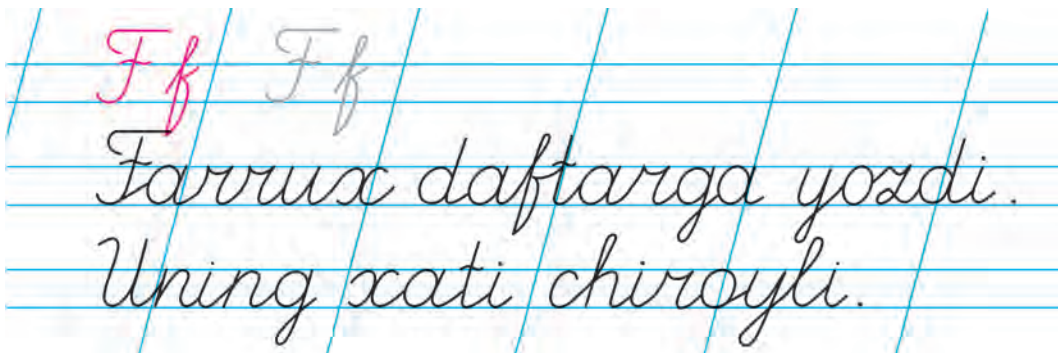 F f F f
Farrux daftarga yozdi.
Uning xati chiroyli.